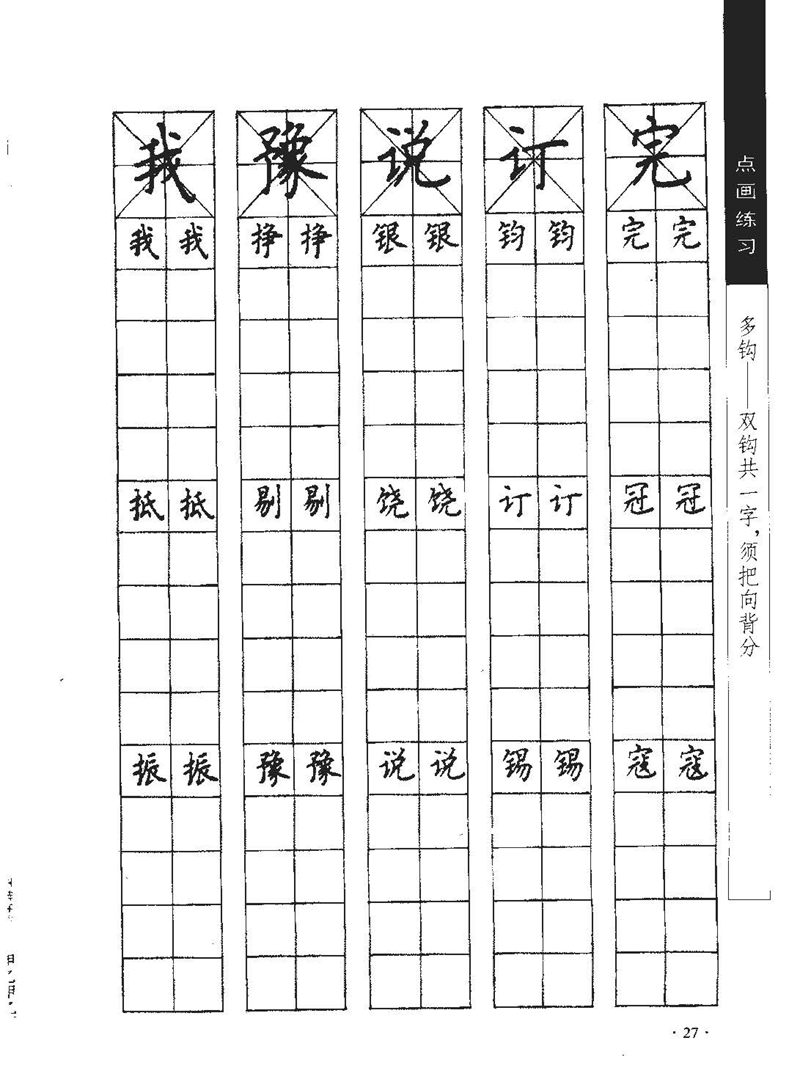 点画练习
多钩——双钩共一字，须把向背分
完
完 完
冠 冠
寇 寇
订
钧 钧
订 订
锡 锡
说
银 银
饶 饶
说 说
豫
挣 挣
剔 剔
豫 豫
我
我 我
抵 抵
振 振
·27·